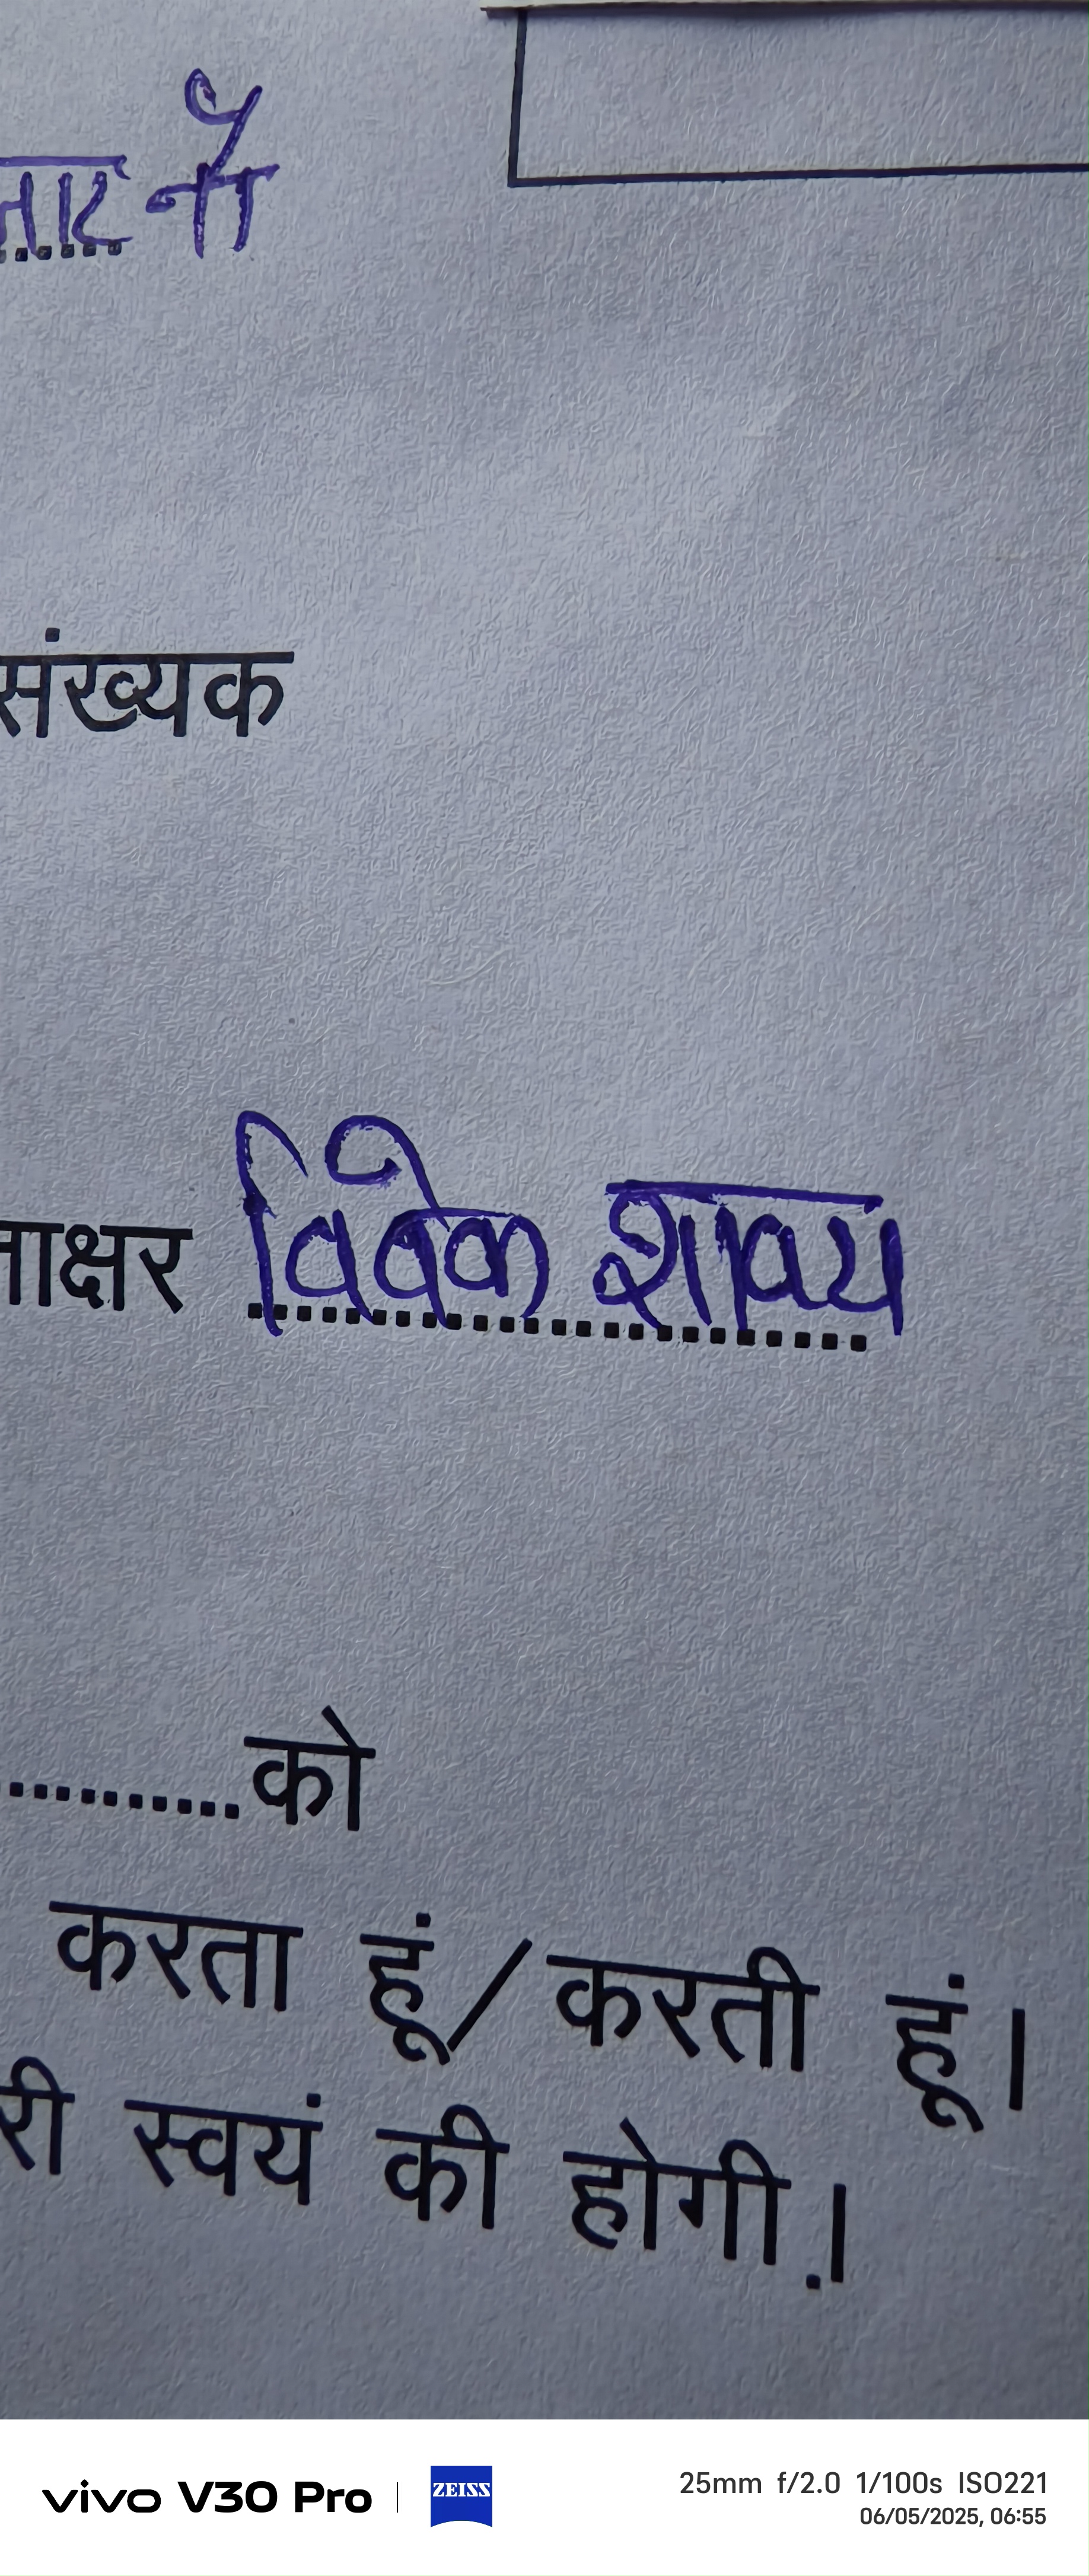 ने
संख्यक
ताक्षर विवेक शाक्य
..........को
करता हूं/करती हूं।
री स्वयं की होगी.।
vivo V30 Pro | ZEISS 25mm f/2.0 1/100s ISO221
06/05/2025, 06:55